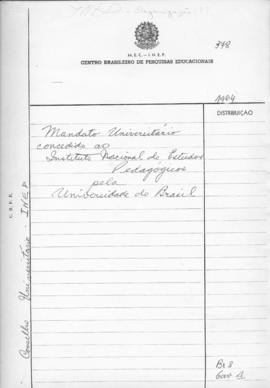 INEP - Organização
378
M. E. C. - I. N. E. P.
CENTRO BRASILEIRO DE PESQUISAS EDUCACIONAIS
1964
DISTRIBUIÇÃO
Mandato Universitário
concedido ao
Instituto Nacional de Estudos
Pedagógicos
pela
Universidade do Brasil
C. B. P. E.
Conselho Universitário - INEP
Br 8
Gav 2